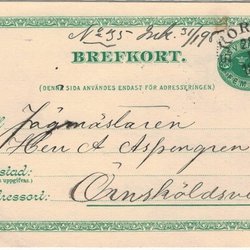 No 35 Ink. 31/1 98
BREFKORT.
(DENNA SIDA ANVÄNDES ENDAST FÖR ADRESSERINGEN)
Till Jägmästaren
Herr A Aspengren
stad:
uppgifves.)
dressort: Örnsköldsv